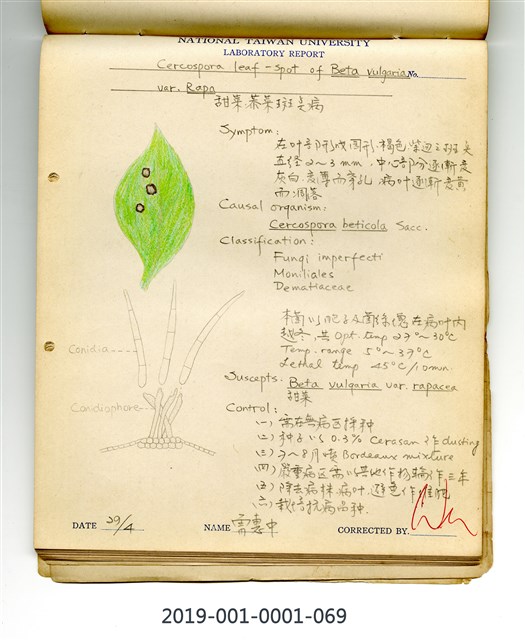 NATIONAL TAIWAN UNIVERSITY
LABORATORY REPORT
Cercospora leaf-spot of Beta vulgaris No.
var. Rapa
甜菜.菾菜斑点病
Symptom:
在叶旁形成圓形.褐色.紫边之斑点
直径2~3 mm. 中心部分逐漸变
灰白.变薄而穿孔.病叶逐漸变黄
而凋落
Causal organism:
Cercospora beticola Sacc.
Classification:
Fungi imperfecti
Moniliales
Dematiaceae
本菌以胞子及菌絲塊在病叶内
越冬.其Opt. temp 27°~30°C
Temp. range 5°~37°C
Lethal temp 45°C/10min.
Conidia
Conidiophore
Suscepts: Beta vulgaria var. rapacea
甜菜
Control:
(一) 需在無病区採种
(二) 种子以0.3% Cerasan 作dusting
(三) 7~8月噴Bordeaux mixture
(四) 嚴重病区需以其他作物輪作三年
(五) 除去病株.病叶.避免作堆肥
(六) 栽培抗病品种.
DATE 29/4 NAME CORRECTED BY.
2019-001-0001-069